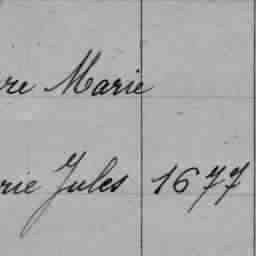 re Marie
rie Jules 1677